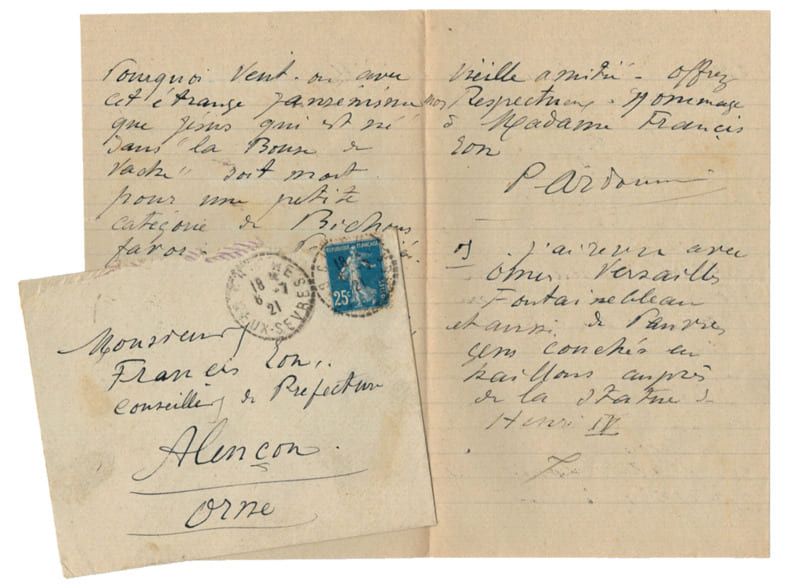 Pourquoi veut-on avec
cet étrange jansénisme
que Jésus qui est né
dans "la Bouse de
vache" soit mort
pour une petite
catégorie de Bichons
favoris
vieille amitié - offrez
mes Respectueux Hommages
à Madame Francis
Eon
P. Ardouin
J'ai revu avec
Versailles
Fontainebleau
et aussi de Pauvres
gens couchés en
haillons auprès
de la statue de
Henri IV
Monsieur
Francis Eon
Conseiller de Préfecture
Alençon.
Orne
REPUBLIQUE FRANÇAISE
25c
18
6-7
21
DEUX-SEVRES